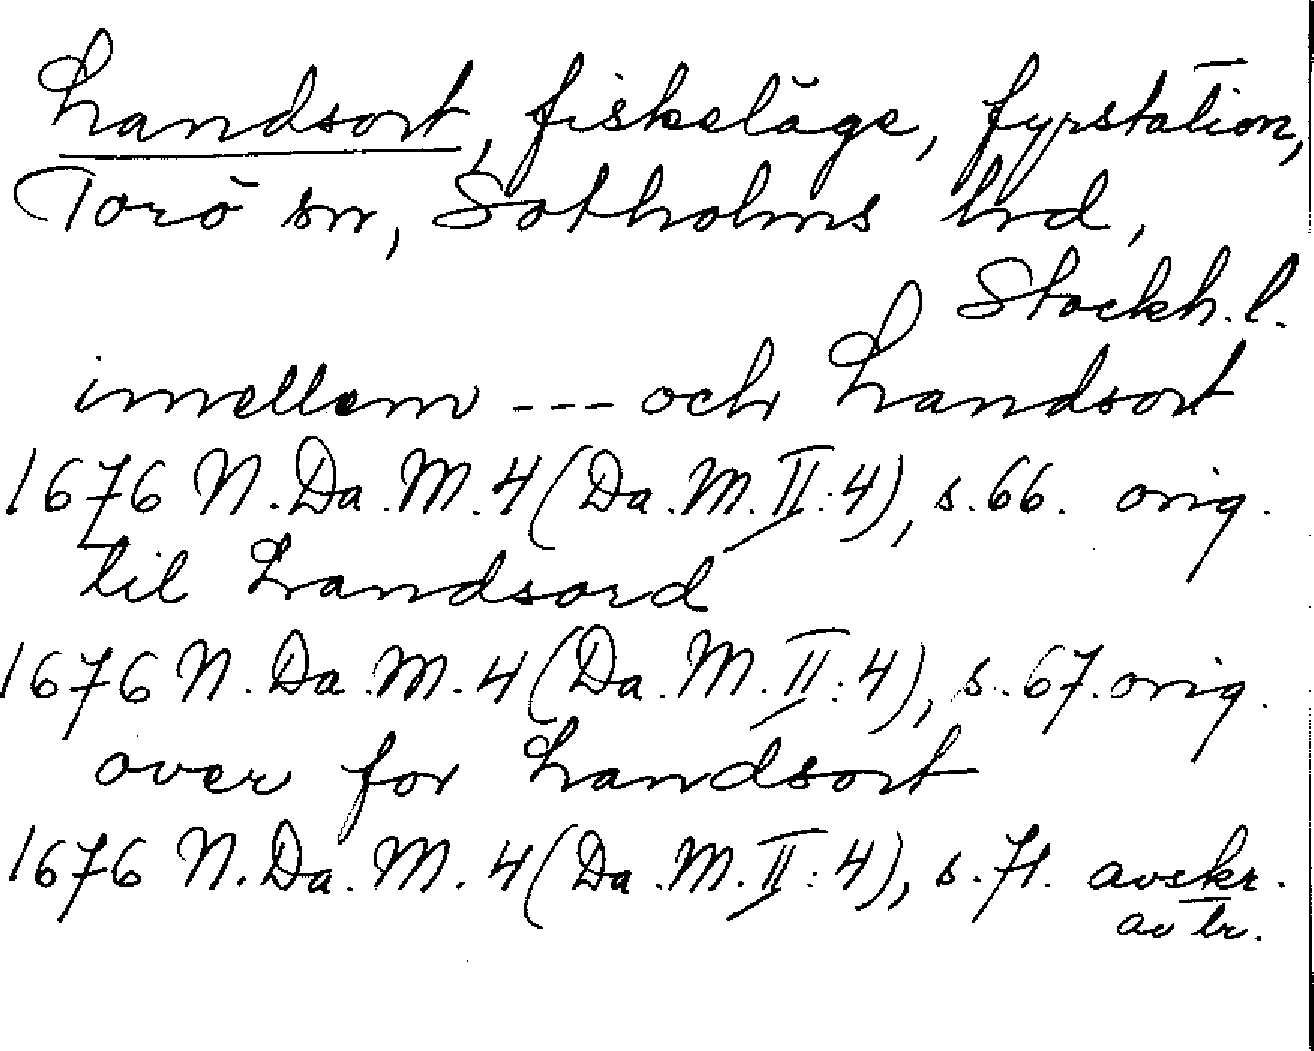 Landsort, fiskeläge, fyrstation,
Torö sn, Sotholms hrd,
Stockh. l.
imellem --- och Landsort
1676 N. Da. M. 4 (Da. M. II: 4), s. 66. orig.
til Landsord
1676 N. Da. M. 4 (Da. M. II: 4), s. 67. orig.
over for Landsort
1676 N. Da. M. 4 (Da. M. II: 4), s. 71. avskr.
av br.